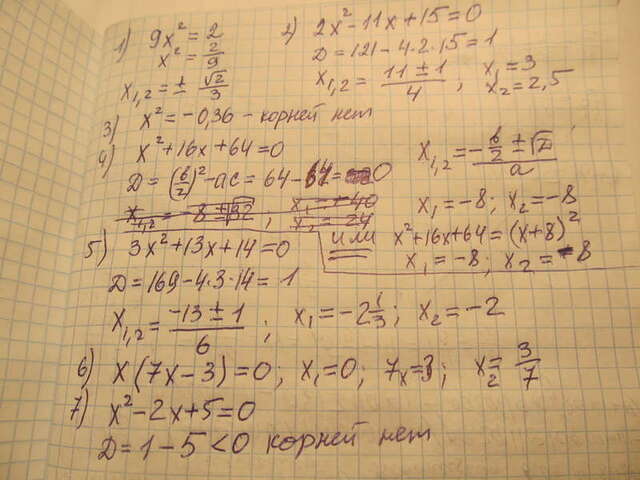 1) 9x² = 2
x² = 2/9
x₁,₂ = ± √2/3
2) 2x² - 11x + 15 = 0
D = 121 - 4·2·15 = 1
x₁,₂ = (11 ± 1)/4 ; x₁ = 3
x₂ = 2,5
3) x² = -0,36 - корней нет
4) x² + 16x + 64 = 0
D = (b/2)² - ac = 64 - 64 = 0
x₁,₂ = (-b/2 ± √D)/a
x₁,₂ = -8 ± √32 ; x₁ = +40
x₂ = 24
x₁ = -8; x₂ = -8
или x² + 16x + 64 = (x + 8)²
x₁ = -8; x₂ = -8
5) 3x² + 13x + 14 = 0
D = 169 - 4·3·14 = 1
x₁,₂ = (-13 ± 1)/6 ; x₁ = -2 1/3 ; x₂ = -2
6) x(7x - 3) = 0; x₁ = 0; 7x = 3; x₂ = 3/7
7) x² - 2x + 5 = 0
D = 1 - 5 < 0 корней нет